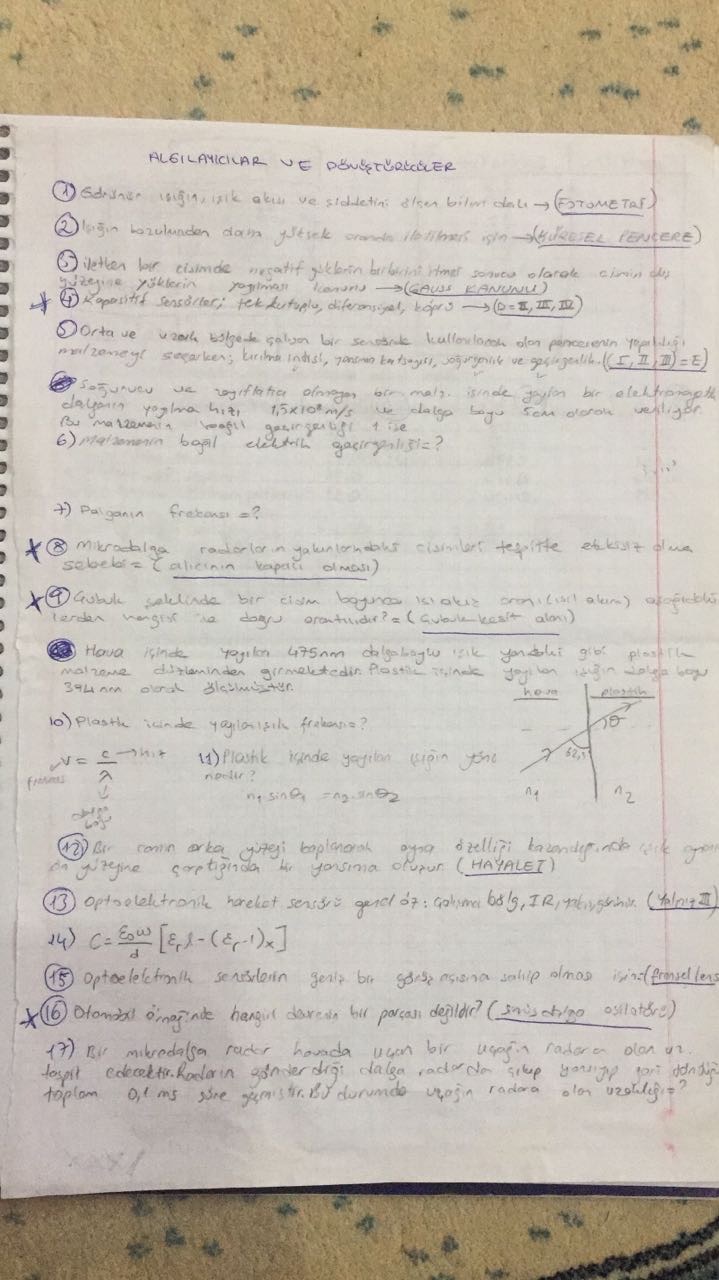 ALGILAYICILAR VE DÖNÜŞTÜRÜCÜLER
① Görünür ışığın, ışık akısı ve şiddetini ölçen bilim dalı → (FOTOMETRİ)
② Işığın bozulmadan daha yüksek oranda iletilmesi için → (KÜRESEL PENCERE)
③ İletken bir cisimde negatif yüklerin birbirini itmesi sonucu olarak cismin dış
yüzeyine yüklerin yayılması kanunu → (GAUS KANUNU)
④ Kapasitif sensörler; tek kutuplu, diferansiyel, köprü → (D = II, III, IV)
⑤ Orta ve uzak bölgede çalışan bir sensörde kullanılacak olan pencerenin yapıldığı
malzemeyi seçerken; kırılma indisi, yansıma katsayısı, soğurganlık ve geçirgenlik. (I, II, III) = E)
Soğurucu ve zayıflatıcı olmayan bir malz. içinde yayılan bir elektromanyetik
dalganın yayılma hızı, 1,5x10⁸ m/s ve dalga boyu 5cm olarak veriliyor.
Bu malzemenin bağıl geçirgenliği 1 ise
6) Malzemenin bağıl elektrik geçirgenliği = ?
7) Dalganın frekansı = ?
⑧ Mikrodalga radarların yakınlarındaki cisimleri tespitte etkisiz olma
sebebi = (alıcının kapalı olması)
⑨ Çubuk şeklinde bir cisim boyunca ısı akış oranı (ısıl akım) aşağıdaki
lerden hangisi ile doğru orantılıdır? = (Çubuk kesit alanı)
Hava içinde yayılan 475nm dalgaboylu ışık yandaki gibi plastik
malzeme düzleminden girmektedir. Plastik içinde yayılan ışığın dalga boyu
394 nm olarak ölçülmüştür.
hava plastik
10) Plastik içinde yayılan ışık frekansı = ?
θ
V = c/λ → hız
frekans
dalga
boyu
11) Plastik içinde yayılan ışığın yönü
nedir?
n₁ sinθ₁ = n₂.sinθ₂
n₁ n₂
⑫ Bir camın arka yüzeyi kaplanarak ayna özelliği kazandığında ışık
ön yüzeyine çarptığında bir yansıma oluşur. (HAYALET)
⑬ Optoelektronik hareket sensörü genel öz: çalışma bölg, IR, (Yalnız III)
14) C = ε₀w/d [εᵣ l - (εᵣ - 1)x]
⑮ Optoelektronik sensörlerin geniş bir görüş açısına sahip olması için = (fransel lens
⑯ Otomobil örneğinde hangisi devrenin bir parçası değildir? (sinüs dalga osilatörü)
17) Bir mikrodalga radar havada uçan bir uçağın radara olan uz.
tespit edecektir. Radarın gönderdiği dalga radardan çıkıp yansıyıp geri döndüğü
toplam 0,1 ms süre geçmiştir. Bu durumda uçağın radara olan uzaklığı = ?